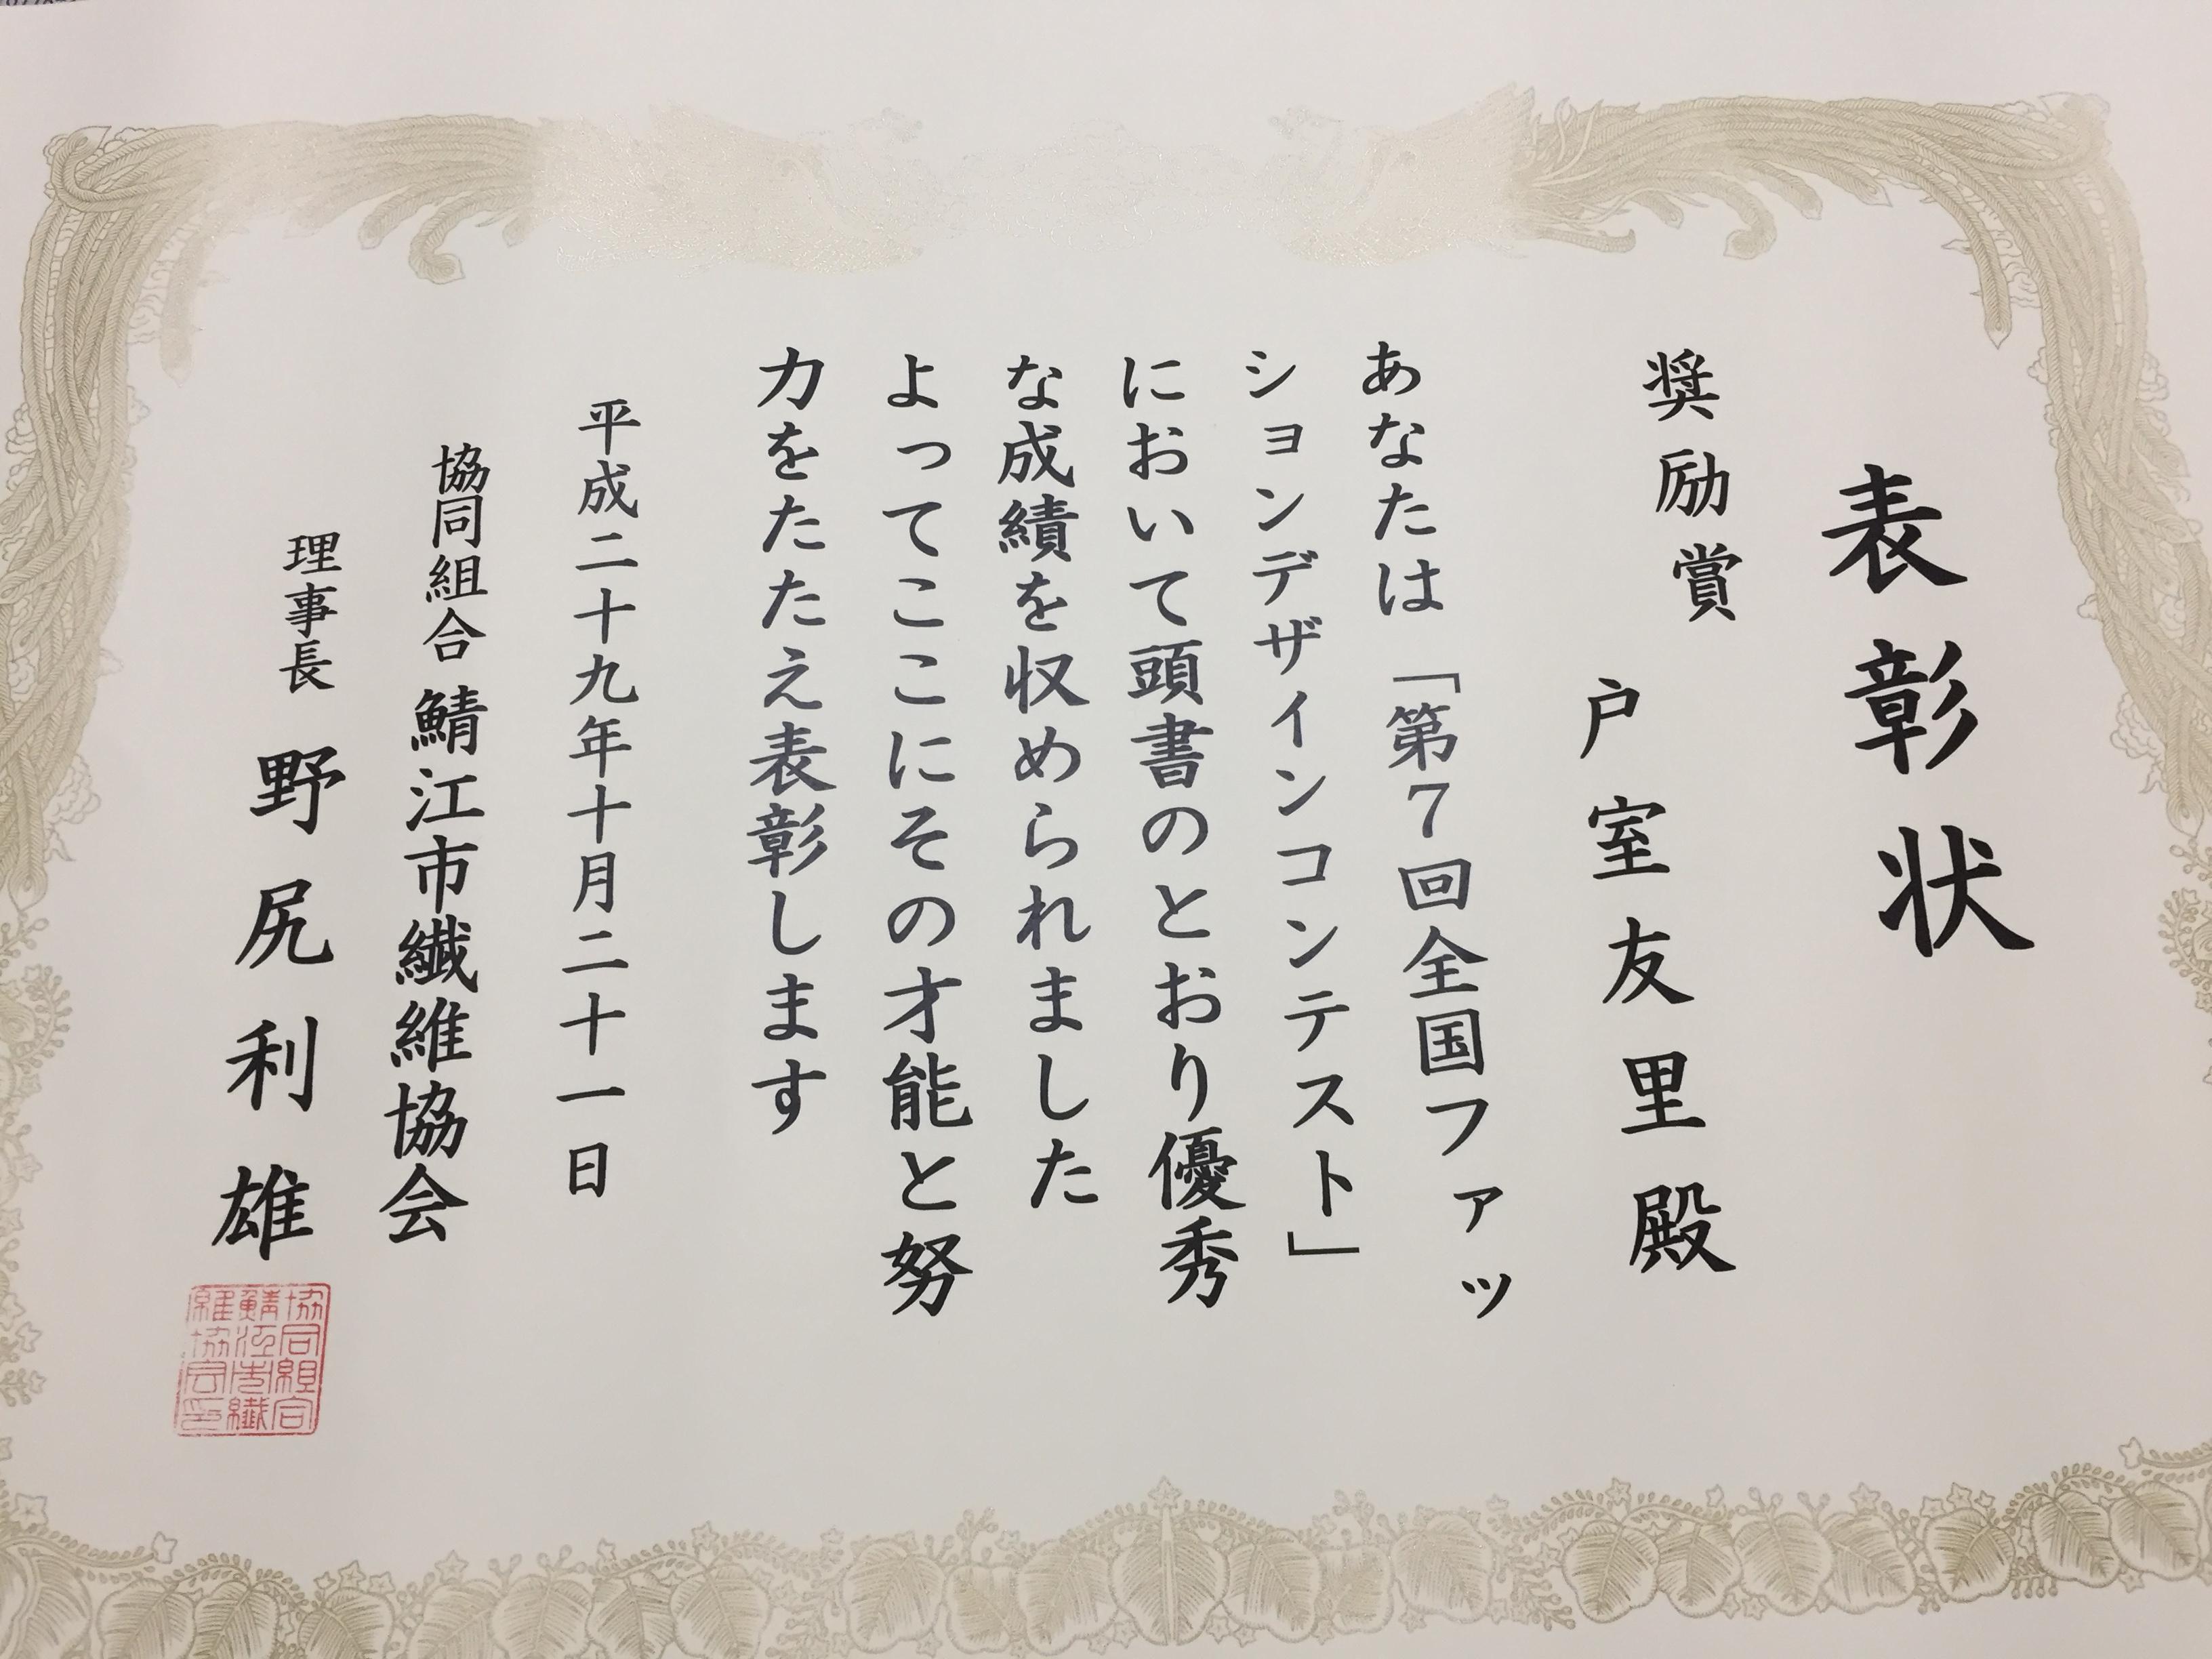 表彰状
奨励賞
戸室友里殿
あなたは「第7回全国ファッ
ションデザインコンテスト」
において頭書のとおり優秀
な成績を収められました
よってここにその才能と努
力をたたえ表彰します
平成二十九年十月二十一日
協同組合 鯖江市繊維協会
理事長 野尻利雄
協同組合
鯖江市繊
維協会印